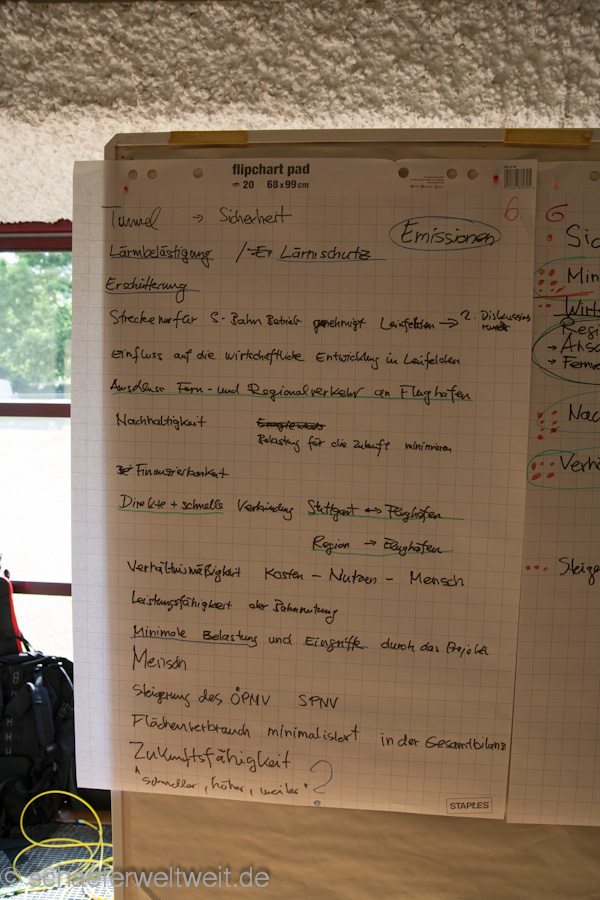 flipchart pad
20 68 x 99 cm
6.
Tunnel → Sicherheit
Emissionen
Lärmbelästigung / Lärmschutz
Erschütterung
Strecke nur für S-Bahn Betrieb genehmigt Leinfelden → 2. Diskussions
runde
Einfluss auf die wirtschaftliche Entwicklung in Leinfelden
Fern- und Regionalverkehr an Flughafen
Nachhaltigkeit
Belastung für die Zukunft minimieren
Finanzierbarkeit
Direkte + schnelle Verbindung Stuttgart ↔ Flughafen
Region → Flughafen
Verhältnismäßigkeit Kosten – Nutzen – Mensch
Leistungsfähigkeit der Bahnnutzung
Minimale Belastung und Eingriffe durch das Projekt
Mensch
Steigerung des ÖPNV SPNV
Flächenverbrauch minimalisiert in der Gesamtbilanz
Zukunftsfähigkeit
"schneller, höher, weiter" ?
STAPLES
6
Sic
Min
Wirt
Regi
→ Ansc
→ Fernv
Nac
Verhä
Steige
© schaeferweltweit.de